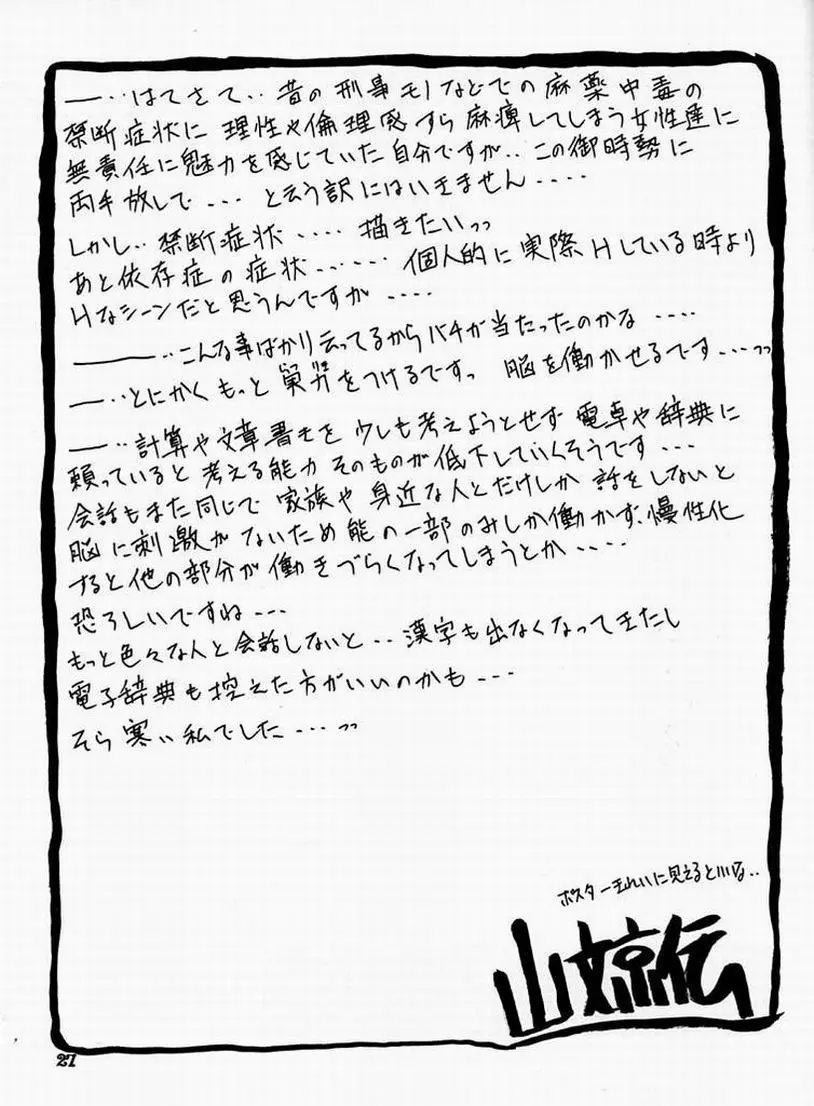 ―‥はてさて‥昔の刑事モノなどでの麻薬中毒の
禁断症状に理性や倫理感すら麻痺してしまう女性達に
無責任に魅力を感じていた自分ですが‥この御時勢に
両手放しで‥‥と云う訳にはいきません‥‥
しかし‥禁断症状‥‥描きたいっっ
あと依存症の症状‥‥‥個人的に実際Hしている時より
Hなシーンだと思うんですが‥‥
―――‥こんな事ばかり云ってるからバチが当たったのかな‥‥
―‥とにかくもっと をつけるですっ 脳を働かせるです…っっ
―‥計算や文章書きを少しも考えようとせず電卓や辞典に
頼っていると考える能力そのものが低下していくそうです…
会話もまた同じで家族や身近な人とだけしか話をしないと
脳に刺激がないため能の一部のみしか働かず、慢性化
すると他の部分が働きづらくなってしまうとか‥‥
恐ろしいですね…
もっと色々な人と会話しないと‥漢字も出なくなってきたし
電子辞典も控えた方がいいのかも…
そら寒い私でした…っっ
ポスターきれいに見えるといいな‥
山文京伝
27